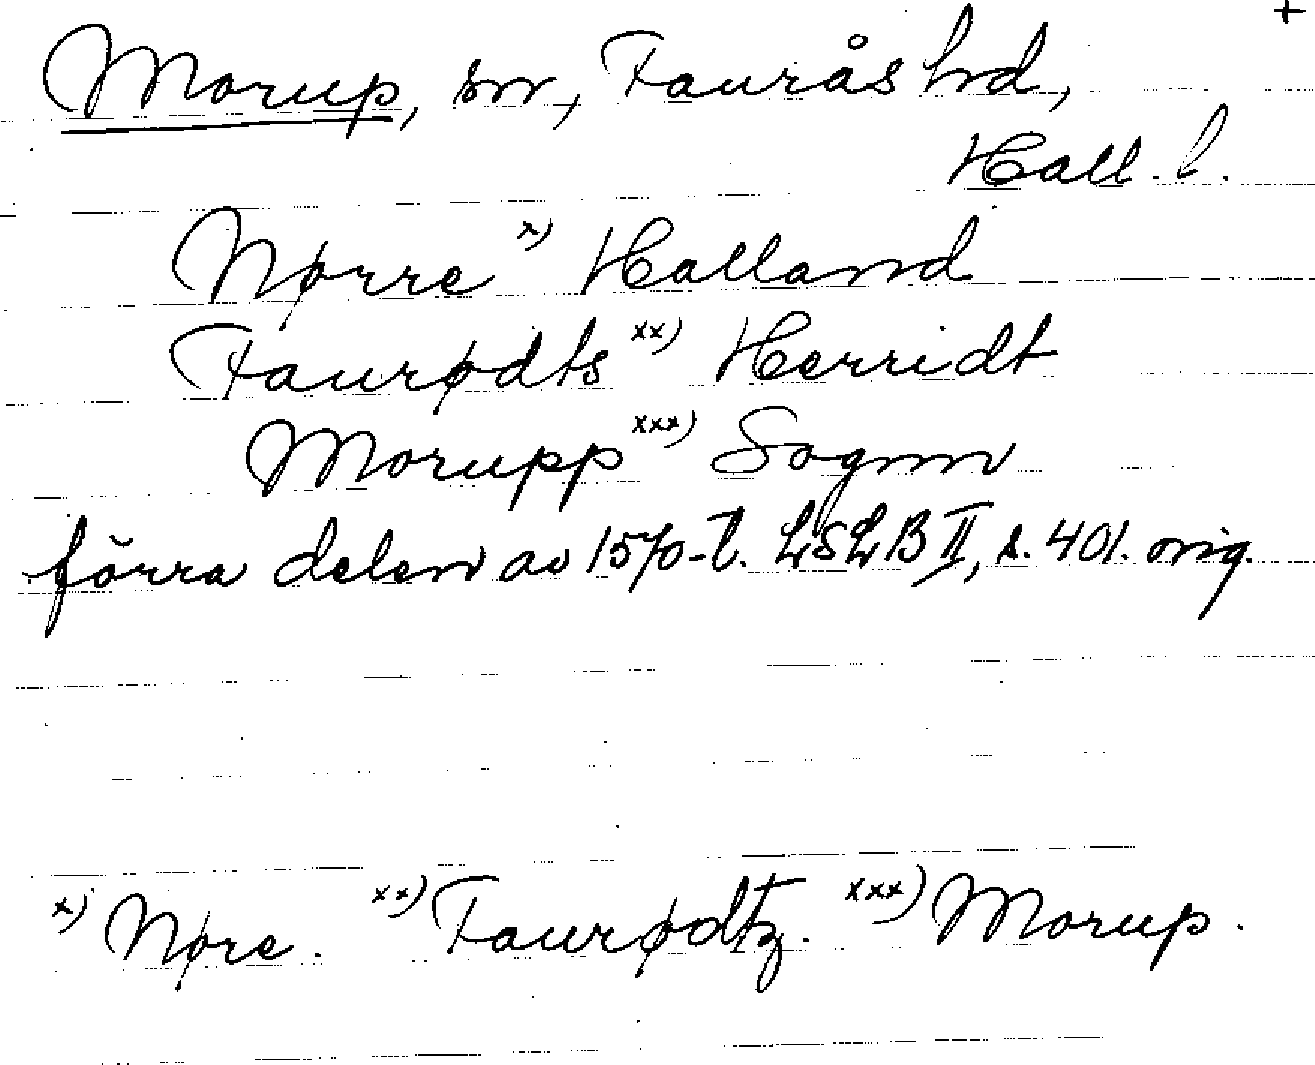 +
Morup, sn, Faurås hd,
Hall. l.
Nørre x) Halland
Faurødts xx) Herridt
Morupp xxx) Sognn
förra delen av 1570-t. LSLB II, s. 401. orig.
x) Nøre. xx) Faurødtz. xxx) Morup.